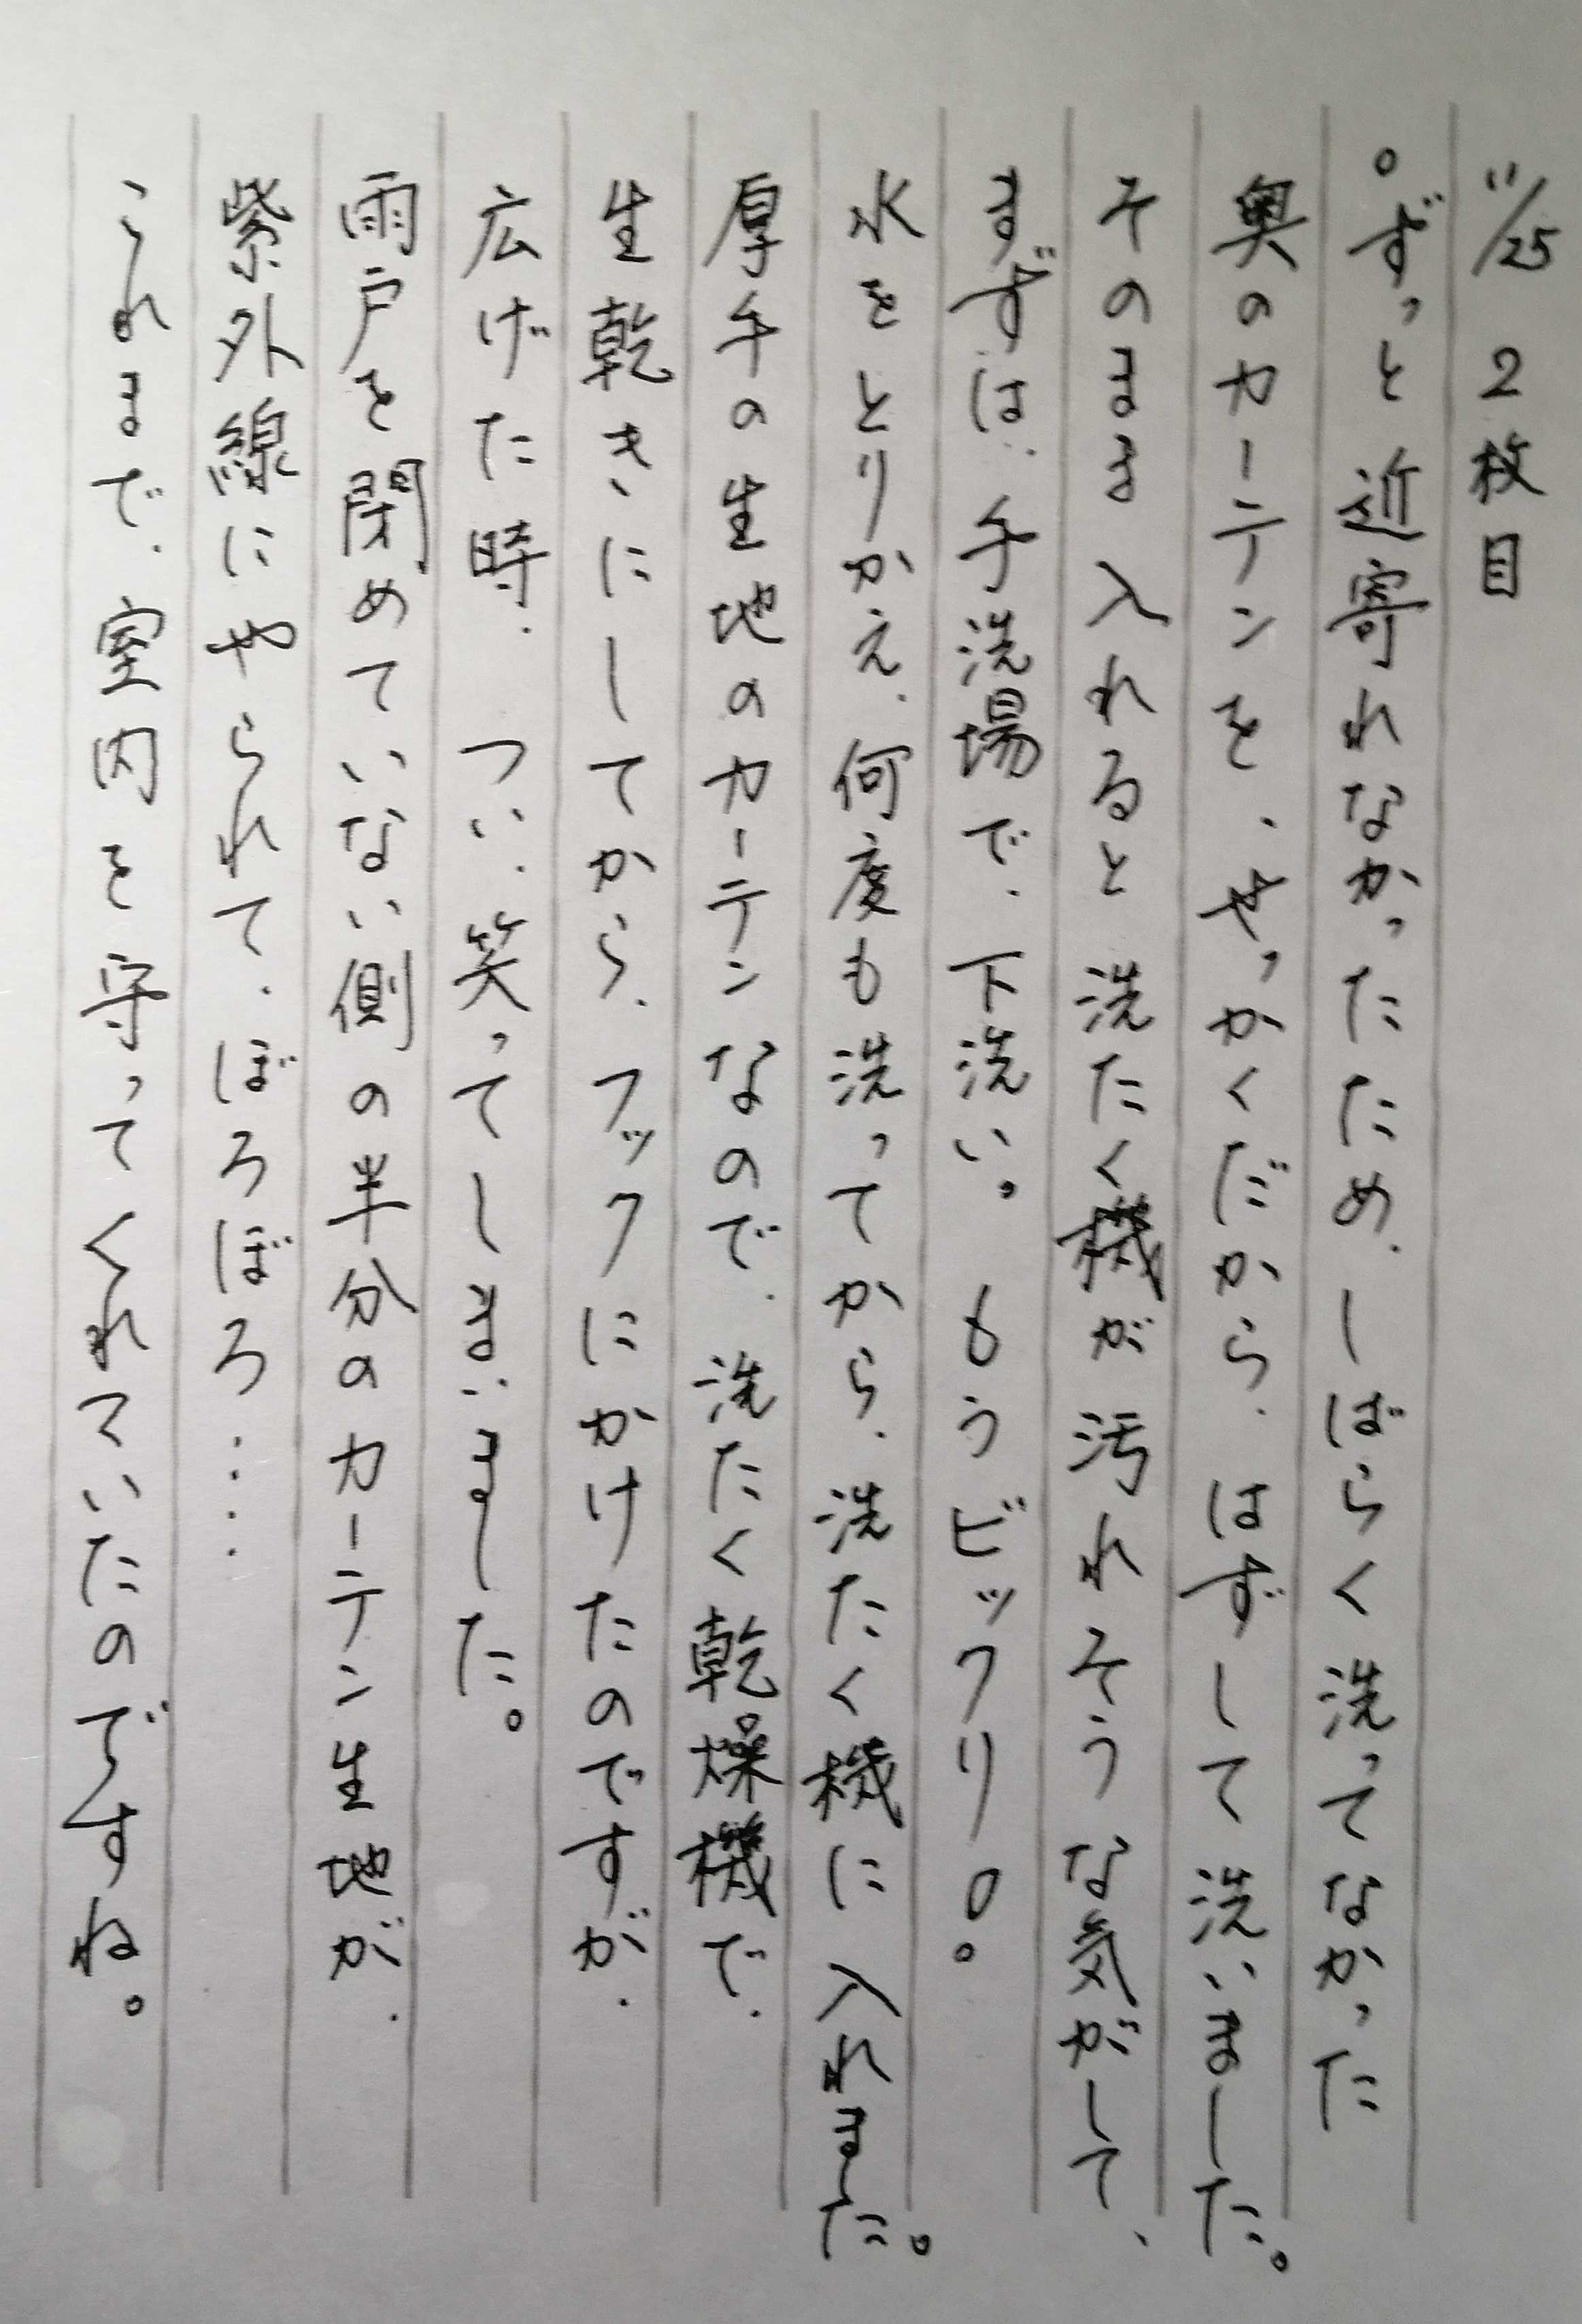 11/25 2枚目
○ずっと近寄れなかったため、しばらく洗ってなかった
奥のカーテンを、せっかくだから、はずして洗いました。
そのまま入れると洗たく機が汚れそうな気がして、
まずは、手洗場で、下洗い。もうビックリ!。
水をとりかえ、何度も洗ってから、洗たく機に入れました。
厚手の生地のカーテンなので、洗たく乾燥機で、
生乾きにしてから、フックにかけたのですが、
広げた時、つい、笑ってしまいました。
雨戸を閉めていない側の半分のカーテン生地が、
紫外線にやられて、ぼろぼろ・・・・
これまで、室内を守ってくれていたのですね。